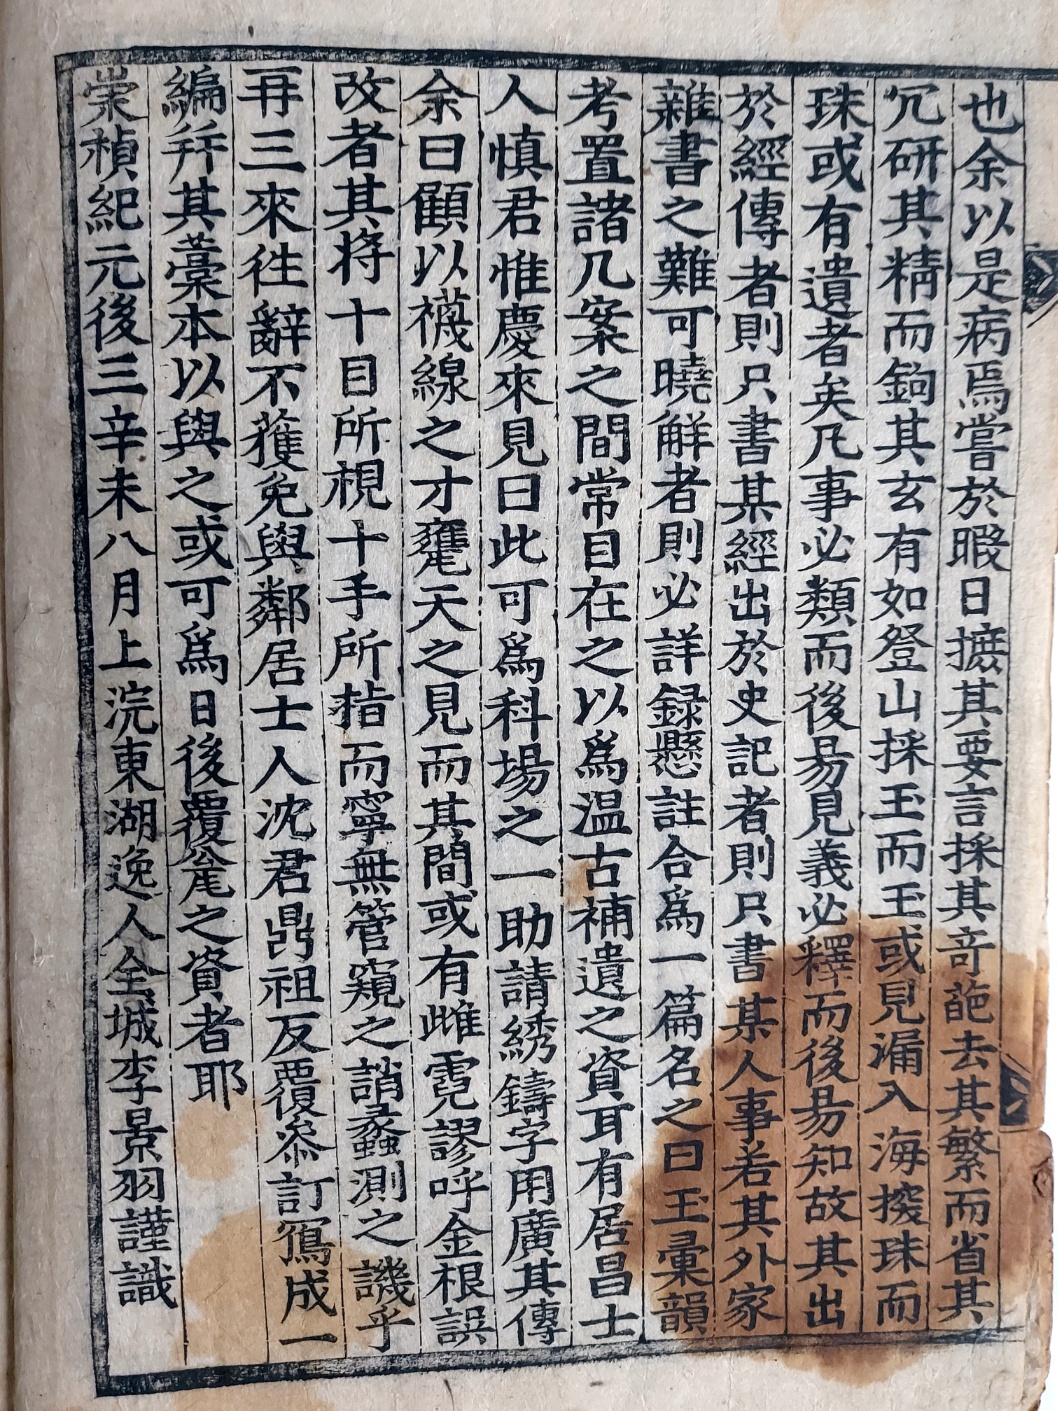 也余以是病焉嘗於暇日摭其要言採其奇葩去其繁而省其
冗研其精而鉤其玄有如登山採玉而玉或見漏入海搜珠而
珠或有遺者矣凡事必類而後易見義必釋而後易知故其出
於經傳者則只書某經出於史記者則只書某人事若其外家
雜書之難可曉解者則必詳録懸註合爲一篇名之曰玉彙韻
考置諸几案之間常目在之以爲温古補遺之資耳有居昌士
人愼君惟慶來見曰此可爲科場之一助請綉鑄字用廣其傳
余曰顧以襪線之才甕天之見而其間或有雌霓謬呼金根誤
改者其將十目所視十手所指而寧無管窺之誚蠡測之譏乎
再三來徃辭不獲免與鄰居士人沈君鼎祖反覆叅訂寫成一
編幷其藁本以與之或可爲日後覆瓮之資者耶
崇禎紀元後三辛未八月上浣東湖逸人全城李景羽謹識